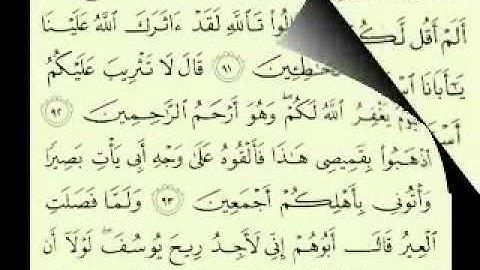 أَلَمْ أَقُل لَّكُ لُوا۟ تَٱللَّهِ لَقَدْ ءَاثَرَكَ ٱللَّهُ عَلَيْنَا
يَٰٓأَبَانَا ٱسْ خَٰطِـِٔينَ ٩١ قَالَ لَا تَثْرِيبَ عَلَيْكُمُ
يَوْمَ يَغْفِرُ ٱللَّهُ لَكُمْ وَهُوَ أَرْحَمُ ٱلرَّٰحِمِينَ ٩٢
ٱذْهَبُوا۟ بِقَمِيصِى هَٰذَا فَأَلْقُوهُ عَلَىٰ وَجْهِ أَبِى يَأْتِ بَصِيرًا
وَأْتُونِى بِأَهْلِكُمْ أَجْمَعِينَ ٩٣ وَلَمَّا فَصَلَتِ
ٱلْعِيرُ قَالَ أَبُوهُمْ إِنِّى لَأَجِدُ رِيحَ يُوسُفَ لَوْلَآ أَن